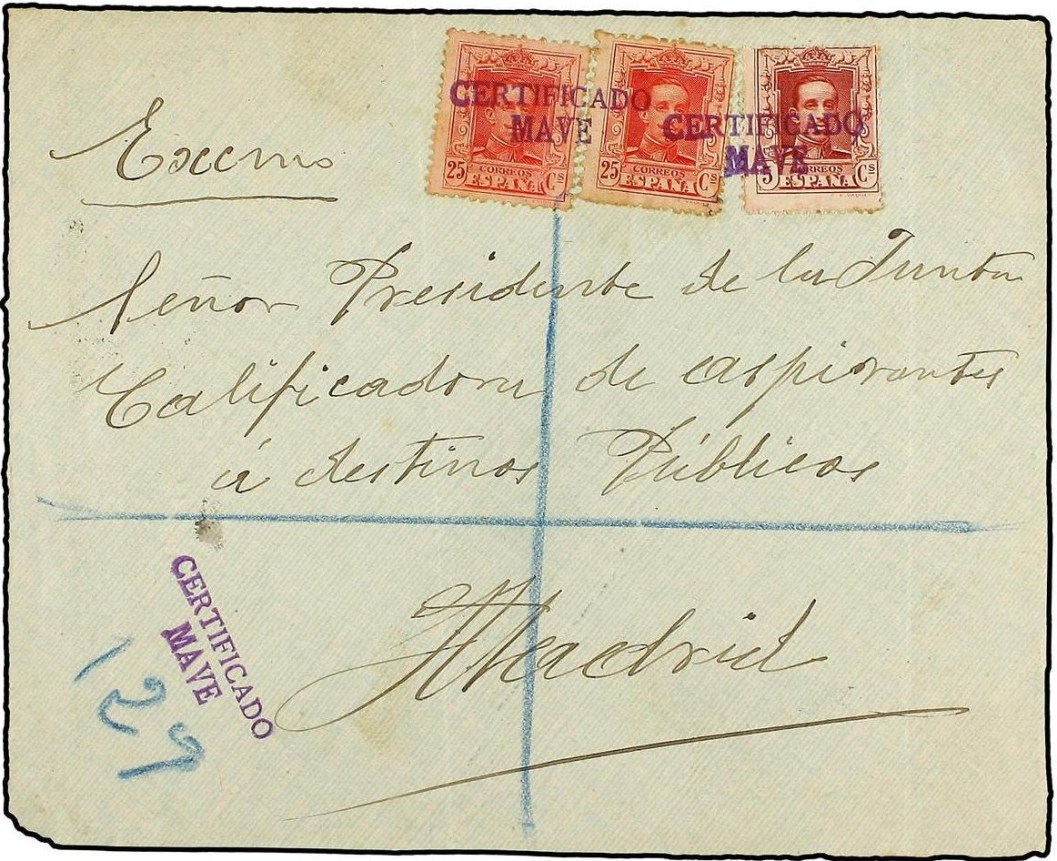 CERTIFICADO
MAVE
CERTIFICADO
MAVE
25 CORREOS Cs
ESPAÑA
25 CORREOS Cs
ESPAÑA
5 CORREOS Cs
ESPAÑA
Excmo
Señor Presidente de la Junta
Calificadora de aspirantes
á destinos Públicos
Madrid
CERTIFICADO
MAVE
129